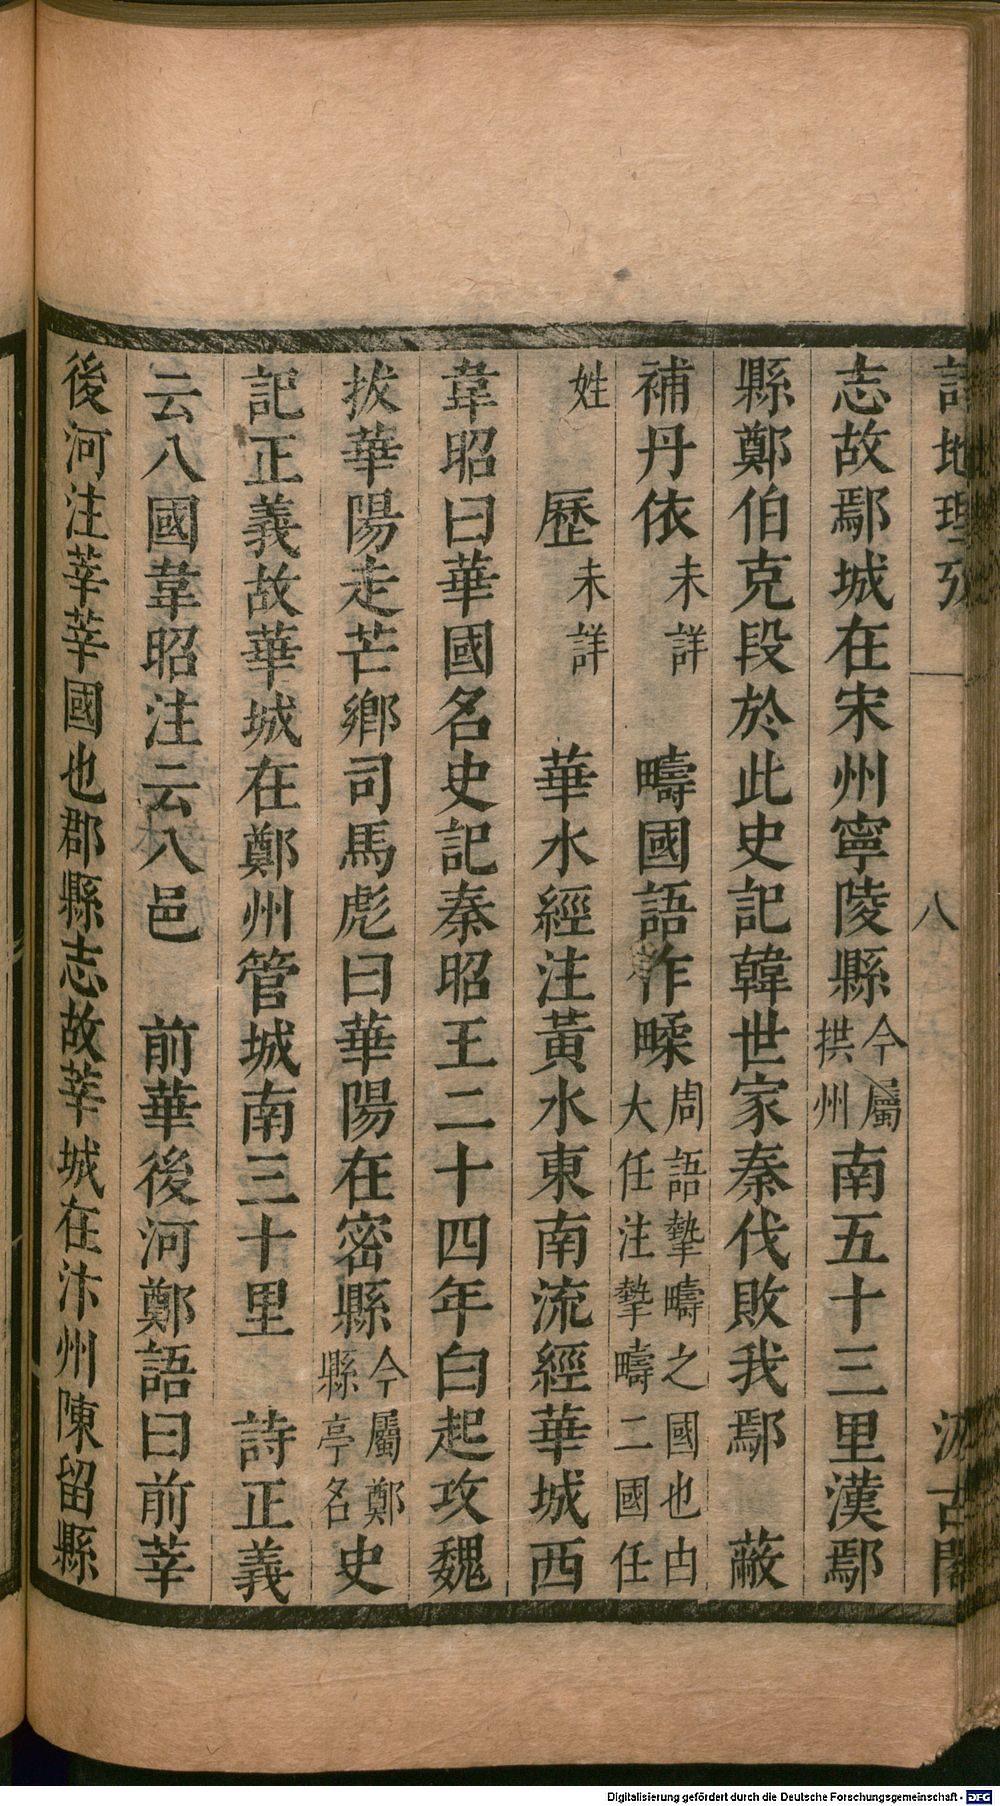 詩地理攷 八 汲古閣
志故鄢城在宋州寧陵縣今屬拱州南五十三里漢鄢
縣鄭伯克段於此史記韓世家秦伐敗我鄢 蔽
補丹依未詳 疇國語作㽥周語摯疇之國也由大任注摯疇二國任
姓 歷未詳 華水經注黃水東南流經華城西
韋昭曰華國名史記秦昭王二十四年白起攻魏
拔華陽走芒鄉司馬彪曰華陽在密縣今屬鄭縣亭名史
記正義故華城在鄭州管城南三十里 詩正義
云八國韋昭注云八邑 前華後河鄭語曰前莘
後河注莘莘國也郡縣志故莘城在汴州陳留縣
Digitalisierung gefördert durch die Deutsche Forschungsgemeinschaft - DFG